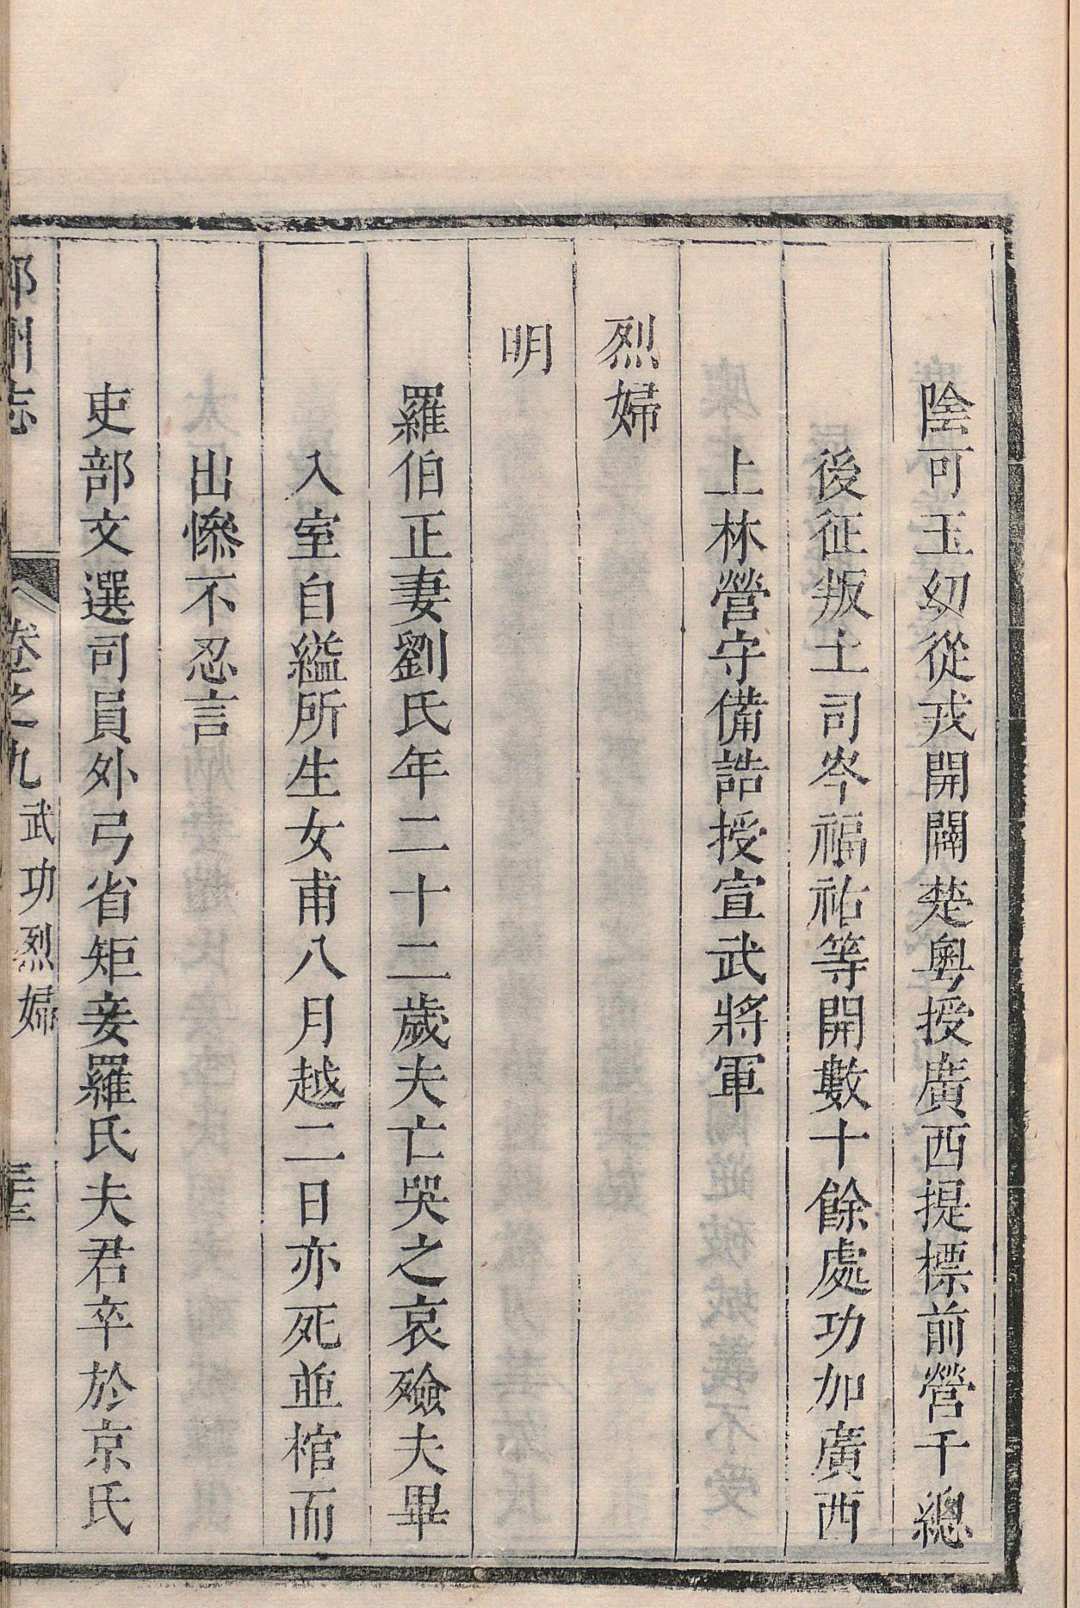 陰可玉幼從戎開闢楚粵授廣西提標前營千總
後征叛土司岑福祐等開數十餘處功加廣西
上林營守備誥授宣武將軍
烈婦
明
羅伯正妻劉氏年二十二歲夫亡哭之哀殮夫畢
入室自縊所生女甫八月越二日亦死並棺而
出慘不忍言
吏部文選司員外弓省矩妾羅氏夫君卒於京氏
州志
卷之九
武功烈婦